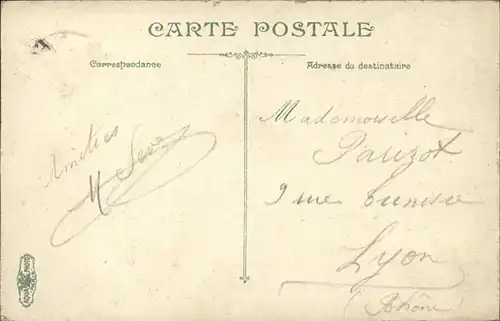 CARTE POSTALE
Correspondance
Adresse du destinataire
Amitiés
Mademoiselle
Parizot
rue
Lyon
(Rhône)